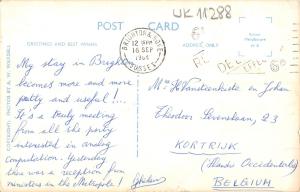 UK 11288
POST CARD
GREETINGS AND BEST WISHES
ADDRESS ONLY
BRIGHTON & HOVE
12 15 PM
16 SEP
SUSSEX
My stay in Brighton
becomes more and more
pretty and useful!...
It's a truly meeting
from all the party
interested in analog
computation. Yesterday
there was a reception from
ministers in the Metropole!
M. H Vansteenkiste en Johan
Theodoor Sevenslaan, 23
KORTRIJK
(Flandre Occidentale)
BELGIUM